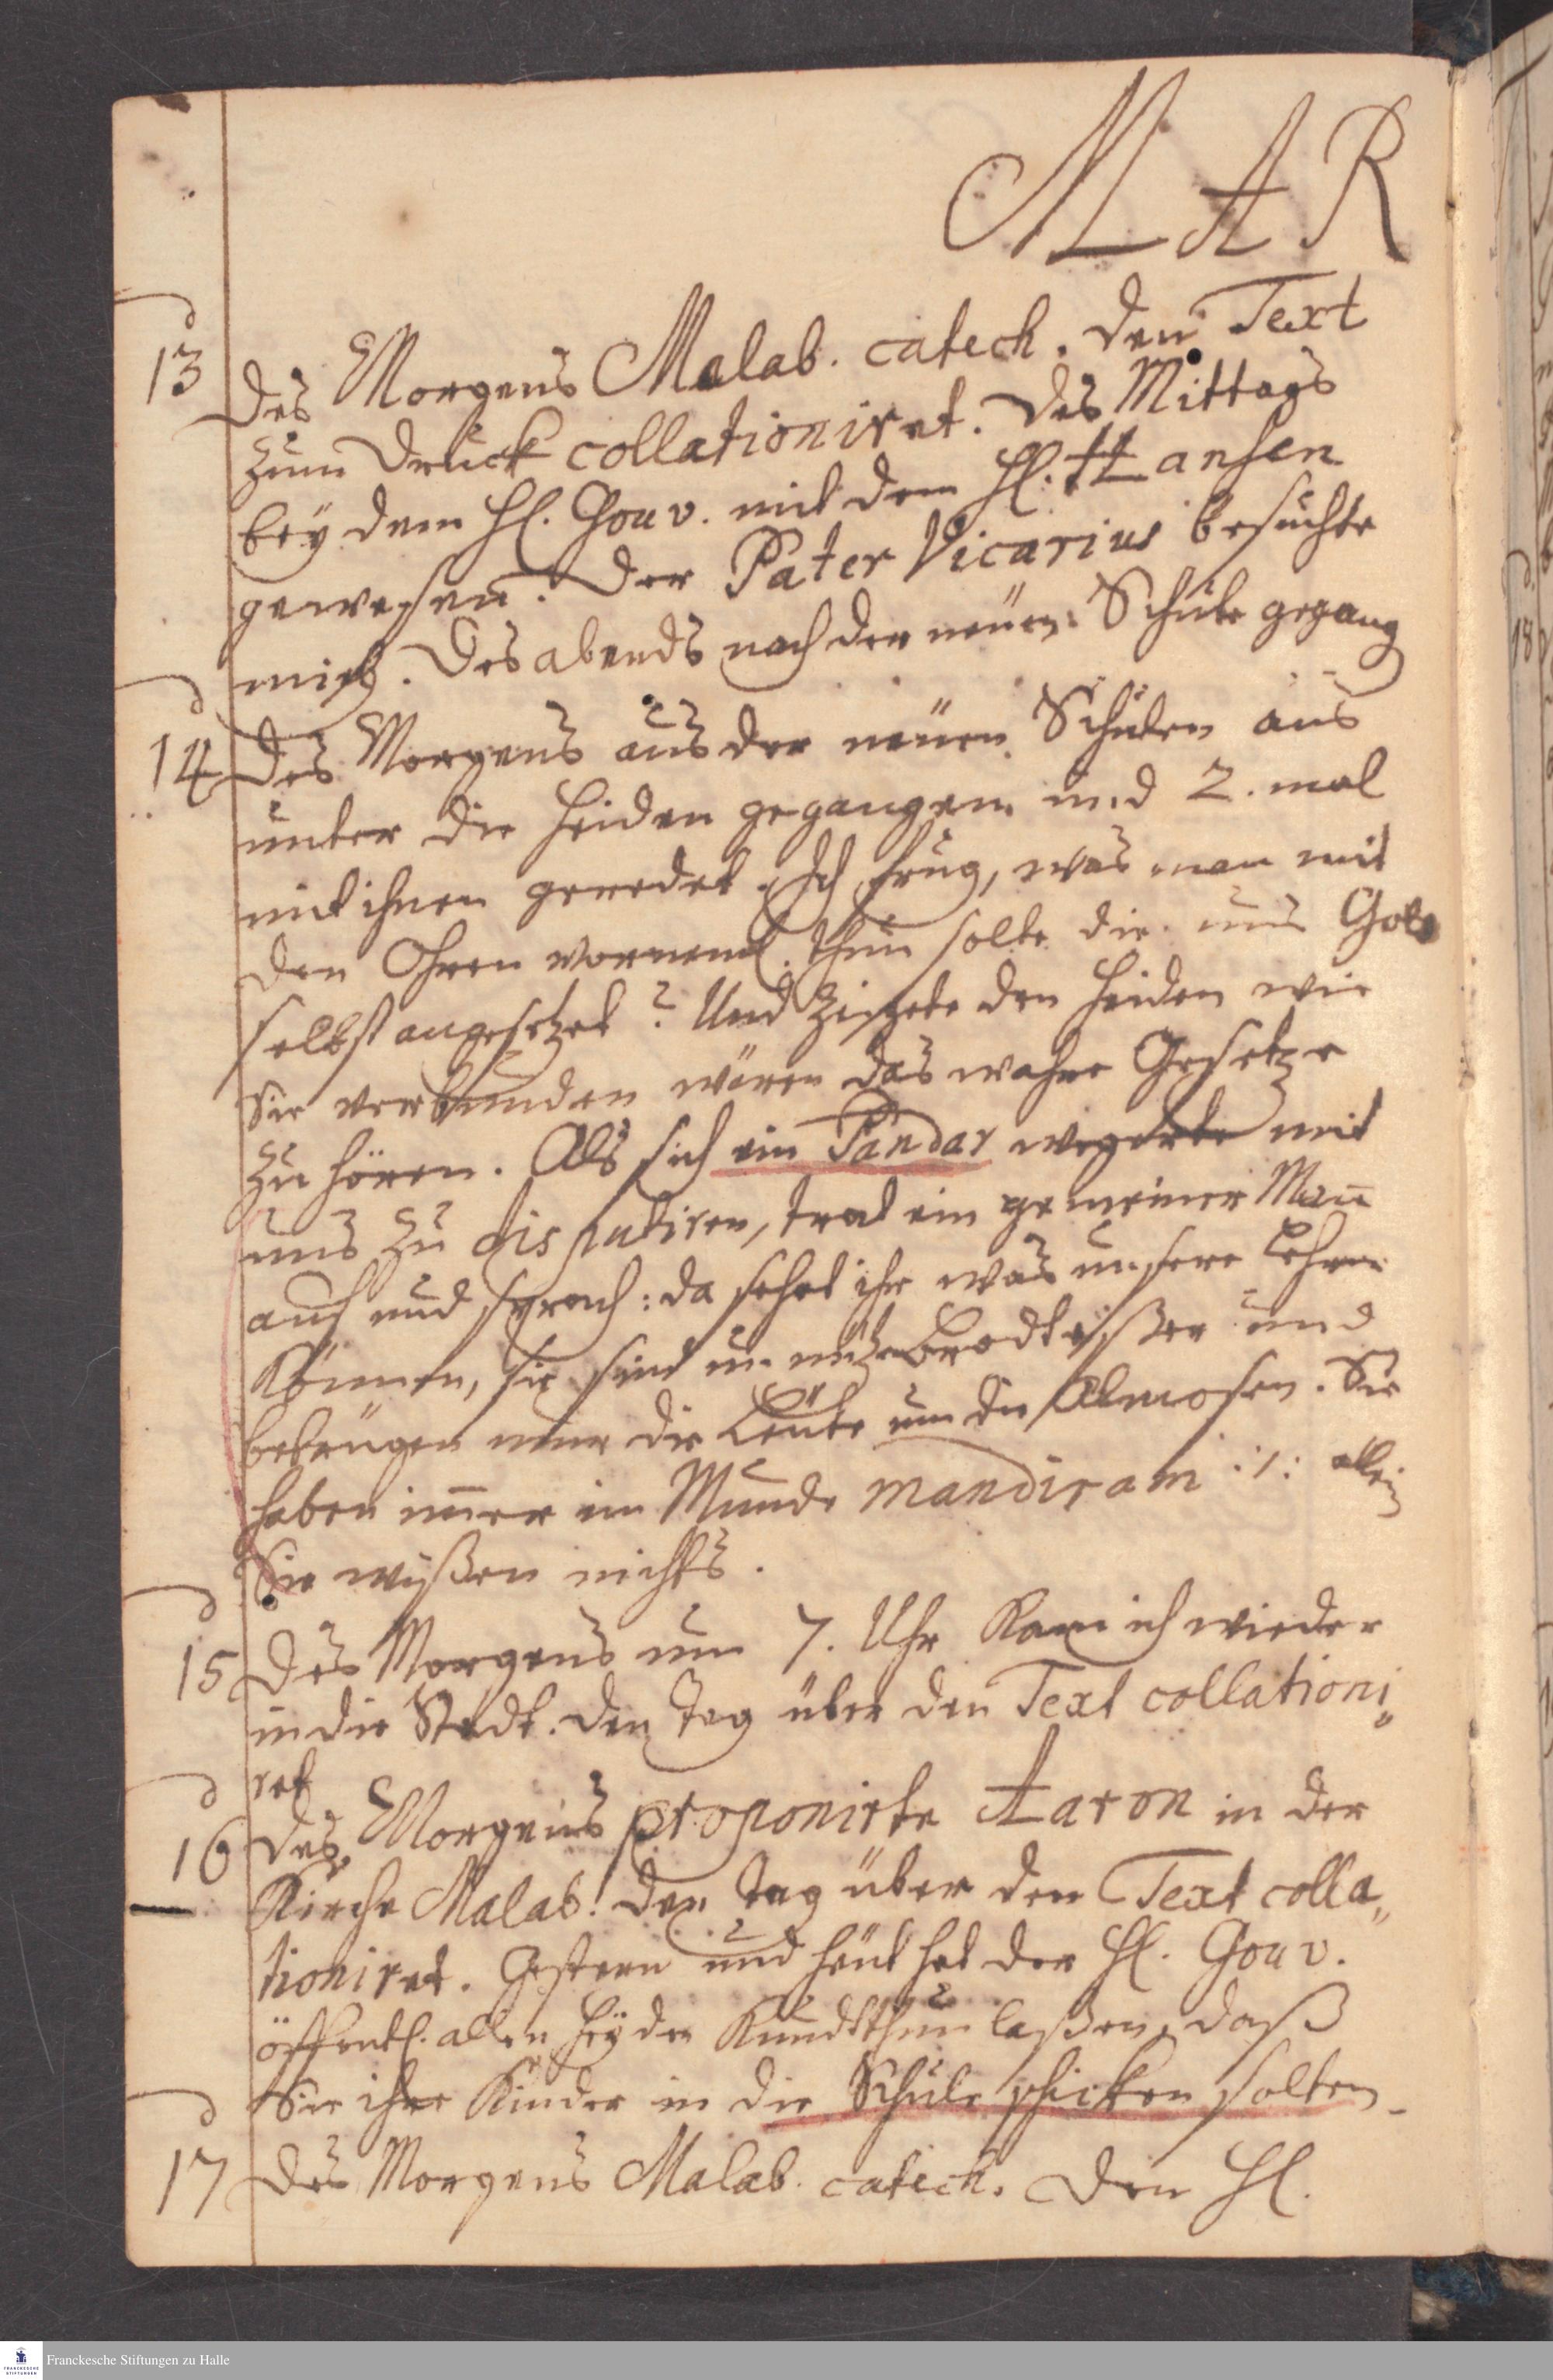 MAR
13 Des Morgens Malab. catech. den Text
zum Druck collationiret. Des Mittags
bey dem H. Gouv. mit dem H. Hansen
gewesen. Der Pater Vicarius besuchte
mich. Des abends nach der neuen Schule gegang
14 Des Morgens aus der neuen Schulen aus
unter die Heiden gegangen und 2. mal
mit ihnen geredet. Ich frug, was man mit
den Ohren vorneml. thun solte die uns Gott
selbst angesetzet? Und zeigete den Heiden wie
sie verbunden wären das wahre Gesetze
zu hören. Als sich ein Pandar wegerte mit
uns zu disputiren, trat ein gemeiner Mann
auf und sprach: da sehet ihr was unsere Lehrer
können, sie sind unnütze Brodtfrißer und
betrügen nur die Leute um die Almosen. Sie
haben immer im Munde mandiram :/: allein
Sie wißen nichts.
15 Des Morgens um 7. Uhr kam ich wieder
in die Stadt. Den Tag über den Text collationi„
ret
16 Des Morgens proponirte Aaron in der
Kirche Malab! Den Tag über den Text colla„
tioniret. Gestern und heut hat der H. Gouv.
öffentl. allen Heyden kundthun laßen, daß
Sie ihre Kinder in die Schule schicken solten.
17 Des Morgens Malab. catech. Den H.
18
Franckesche Stiftungen zu Halle
FRANCKESCHE
STIFTUNGEN